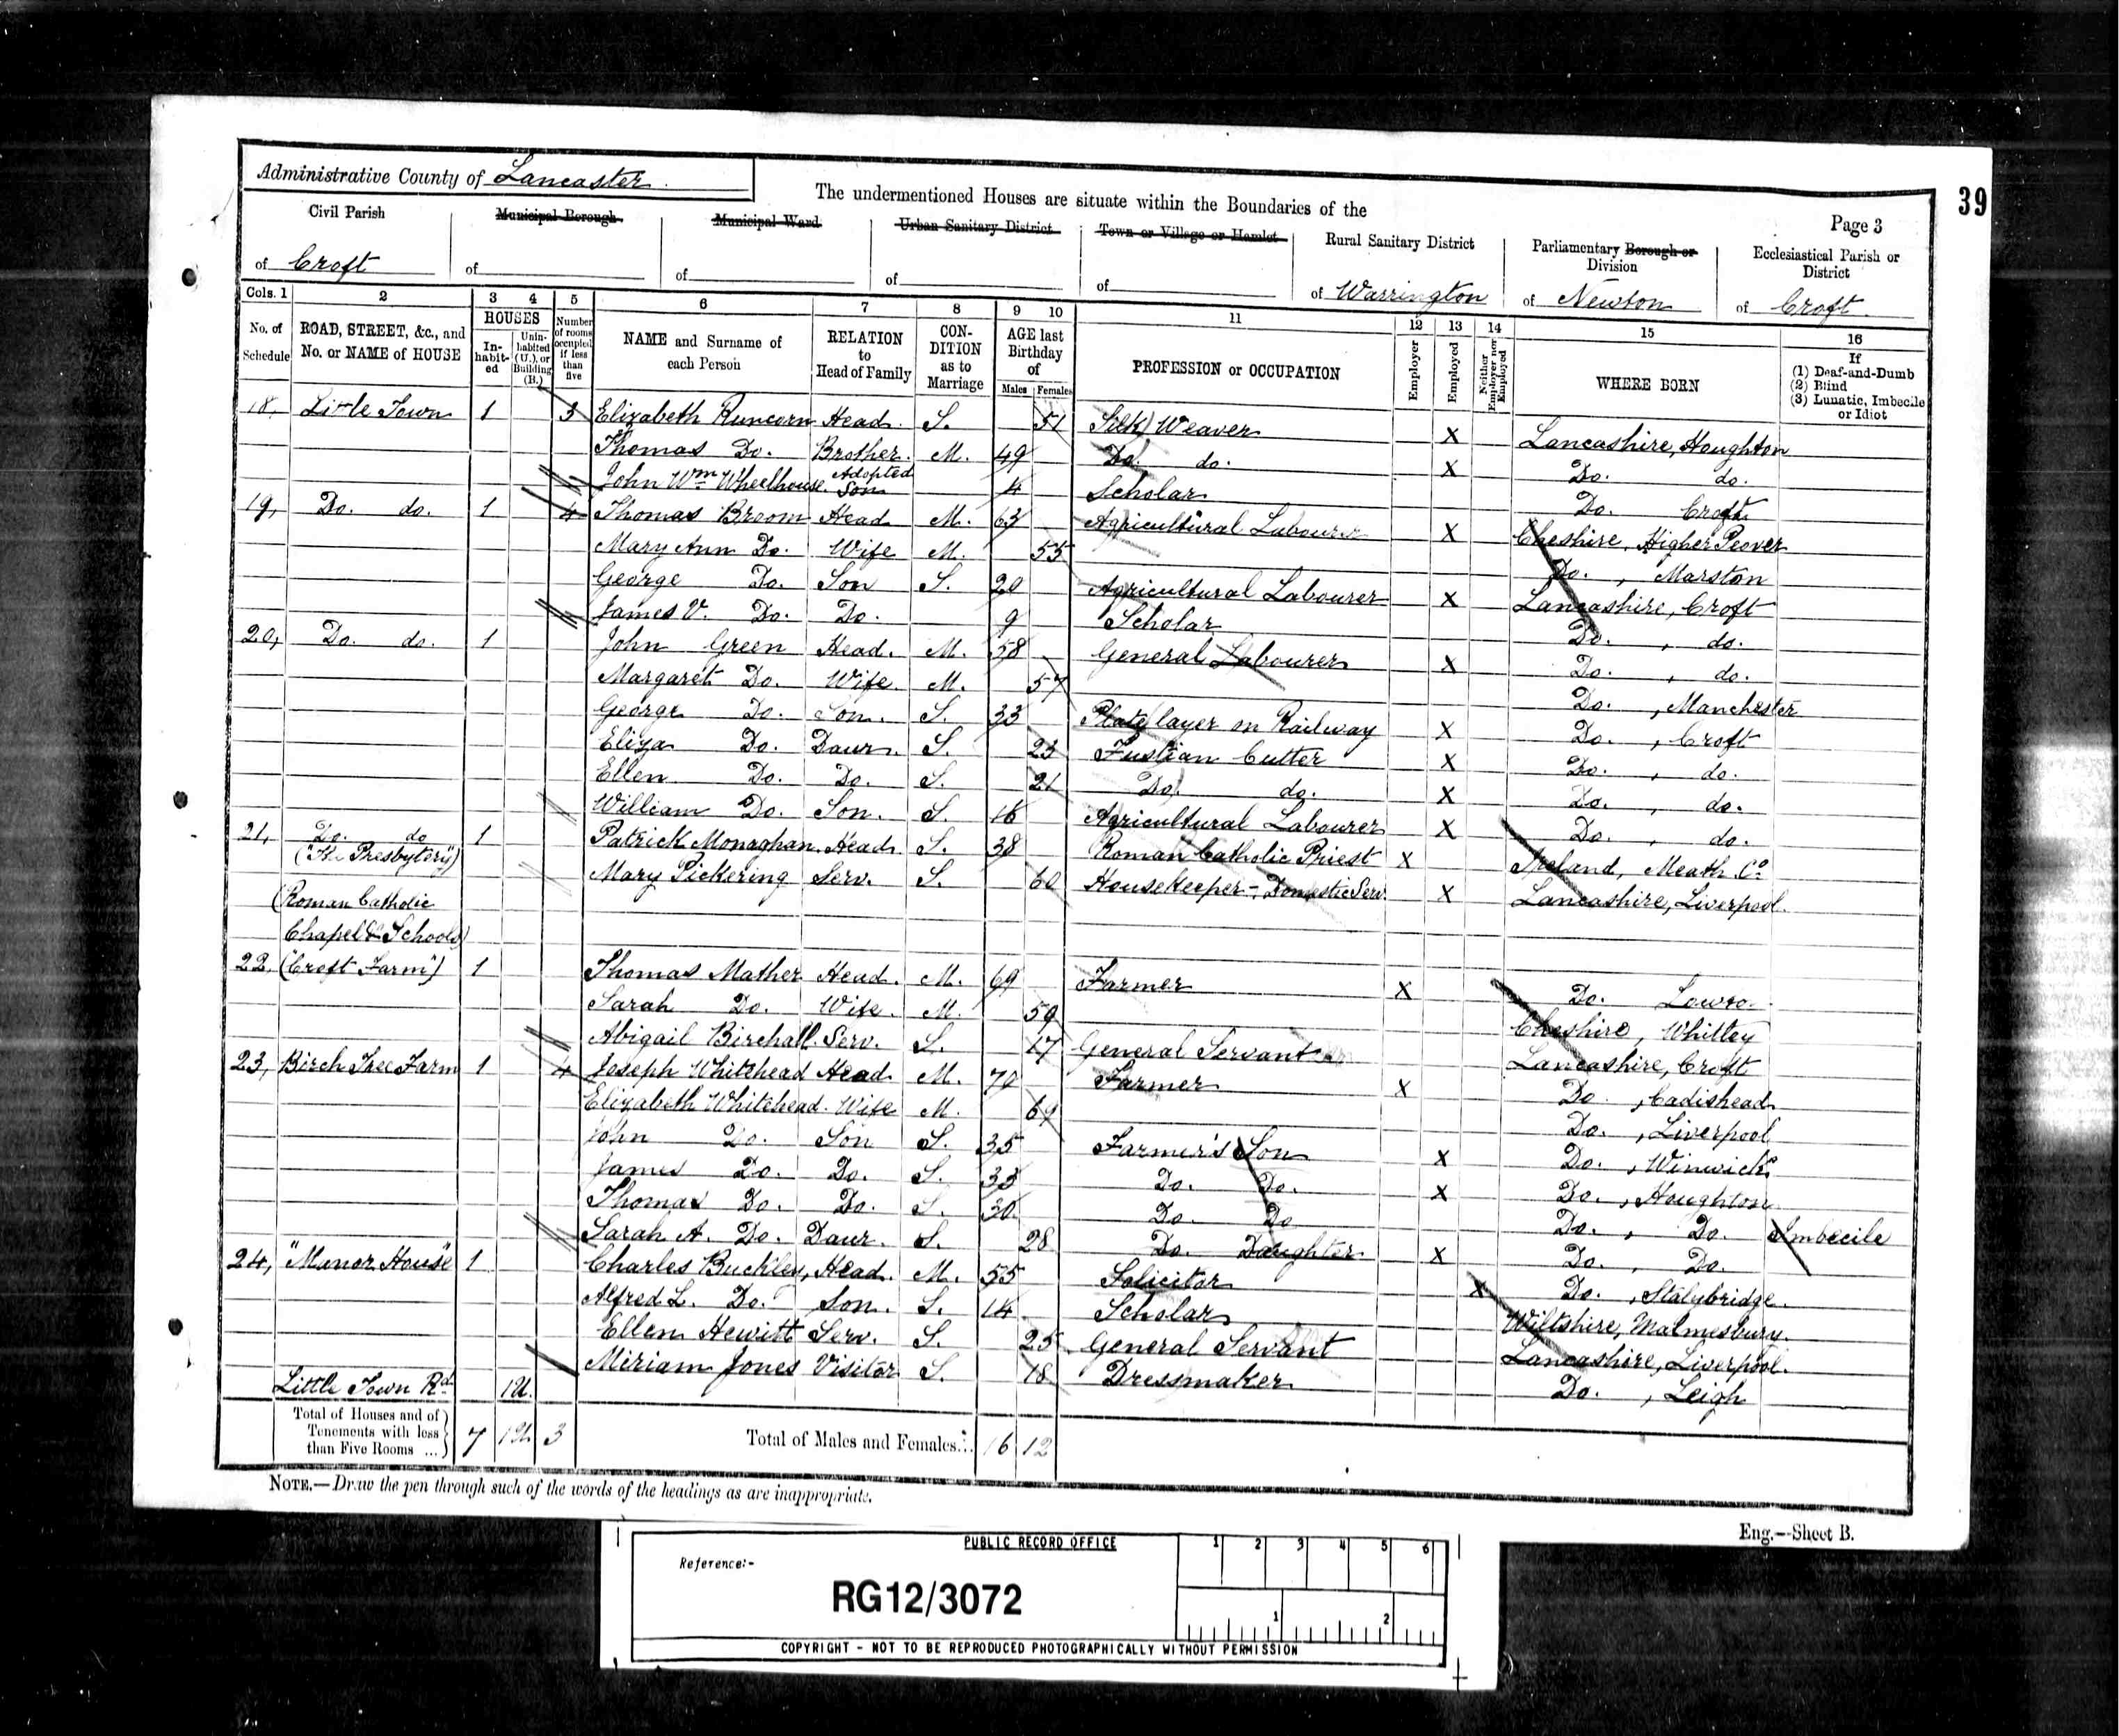 39
Administrative County of Lancaster.
The undermentioned Houses are situate within the Boundaries of the
Page 3
Civil Parish of Croft
Municipal Borough of
Municipal Ward of
Urban Sanitary District of
Town or Village or Hamlet of
Rural Sanitary District of Warrington
Parliamentary Borough or Division of Newton
Ecclesiastical Parish or District of Croft.
Cols. 1 2 3 4 5 6 7 8 9 10 11 12 13 14 15 16
No. of Schedule
ROAD, STREET, &c., and No. or NAME of HOUSE
HOUSES
In-habit-ed
Unin-habited (U.), or Building (B.)
Number of rooms occupied if less than five
NAME and Surname of each Person
RELATION to Head of Family
CON-DITION as to Marriage
AGE last Birthday of
Males Females
PROFESSION or OCCUPATION
Employer
Employed
Neither Employer nor Employed
WHERE BORN
If
(1) Deaf-and-Dumb
(2) Blind
(3) Lunatic, Imbecile or Idiot
18, Little Town 1 3 Elizabeth Runcorn Head. S. 51 Silk Weaver X Lancashire, Houghton
Thomas Do. Brother. M. 49 Do. do. X Do. do.
John Wm Wheelhouse. Adopted Son 4 Scholar Do. Croft.
19, Do. do. 1 4 Thomas Broom Head M. 63 Agricultural Labourer X Cheshire, Higher Peover
Mary Ann Do. Wife M. 55 Do. , Marston
George Do. Son S. 20 Agricultural Labourer X Lancashire, Croft
James V. Do. Do. 9 Scholar Do. , do.
20, Do. do. 1 John Green Head. M. 58 General Labourer X Do. , do.
Margaret Do. Wife. M. 57 Do. , Manchester
George Do. Son. S. 33 Plate layer on Railway X Do. , Croft
Eliza Do. Daur. S. 23 Fustian Cutter X Do. , do.
Ellen Do. Do. S. 21 Do. do. X Do. , do.
William Do. Son. S. 16 Agricultural Labourer X Do. , do.
21, Do. do 1 Patrick Monaghan. Head. S. 38 Roman Catholic Priest X Ireland, Meath Co.
("The Presbytery") Mary Pickering Serv. S. 60 Housekeeper - Domestic Serv. X Lancashire, Liverpool.
(Roman Catholic
Chapel & Schools)
22, ("Croft Farm") 1 Thomas Mather Head. M. 69 Farmer X Do.
Sarah Do. Wife. M. 59 Cheshire, Whitley
Abigail Birchall. Serv. S. 17 General Servant Lancashire, Croft
23, Birch Tree Farm 1 4 Joseph Whitehead Head M. 70 Farmer X Do. , Cadishead
Elizabeth Whitehead. Wife M. 69 Do. , Liverpool
John Do. Son S. 35 Farmer's Son X Do. , Winwick
James Do. Do. S. 33 Do. Do. X Do. , Houghton
Thomas Do. Do. S. 30. Do. Do Do. , Do. Imbecile
Sarah A. Do. Daur. S. 28 Do. Daughter X Do. , Do.
24, "Manor House" 1 Charles Buckley, Head. M. 55 Solicitor X Do. , Stalybridge.
Alfred L. Do. Son. S. 14 Scholar Wiltshire, Malmesbury.
Ellen Hewitt Serv. S. 25 General Servant Lancashire, Liverpool.
Miriam Jones Visitor S. 18 Dressmaker Do. , Leigh
Little Town Rd 1U.
Total of Houses and of Tenements with less than Five Rooms ... 7 1U. 3 Total of Males and Females.. 16 12
NOTE.—Draw the pen through such of the words of the headings as are inappropriate.
Eng.—Sheet B.
PUBLIC RECORD OFFICE
1 2 3 4 5 6
Reference:-
RG12/3072
1 2
COPYRIGHT - NOT TO BE REPRODUCED PHOTOGRAPHICALLY WITHOUT PERMISSION